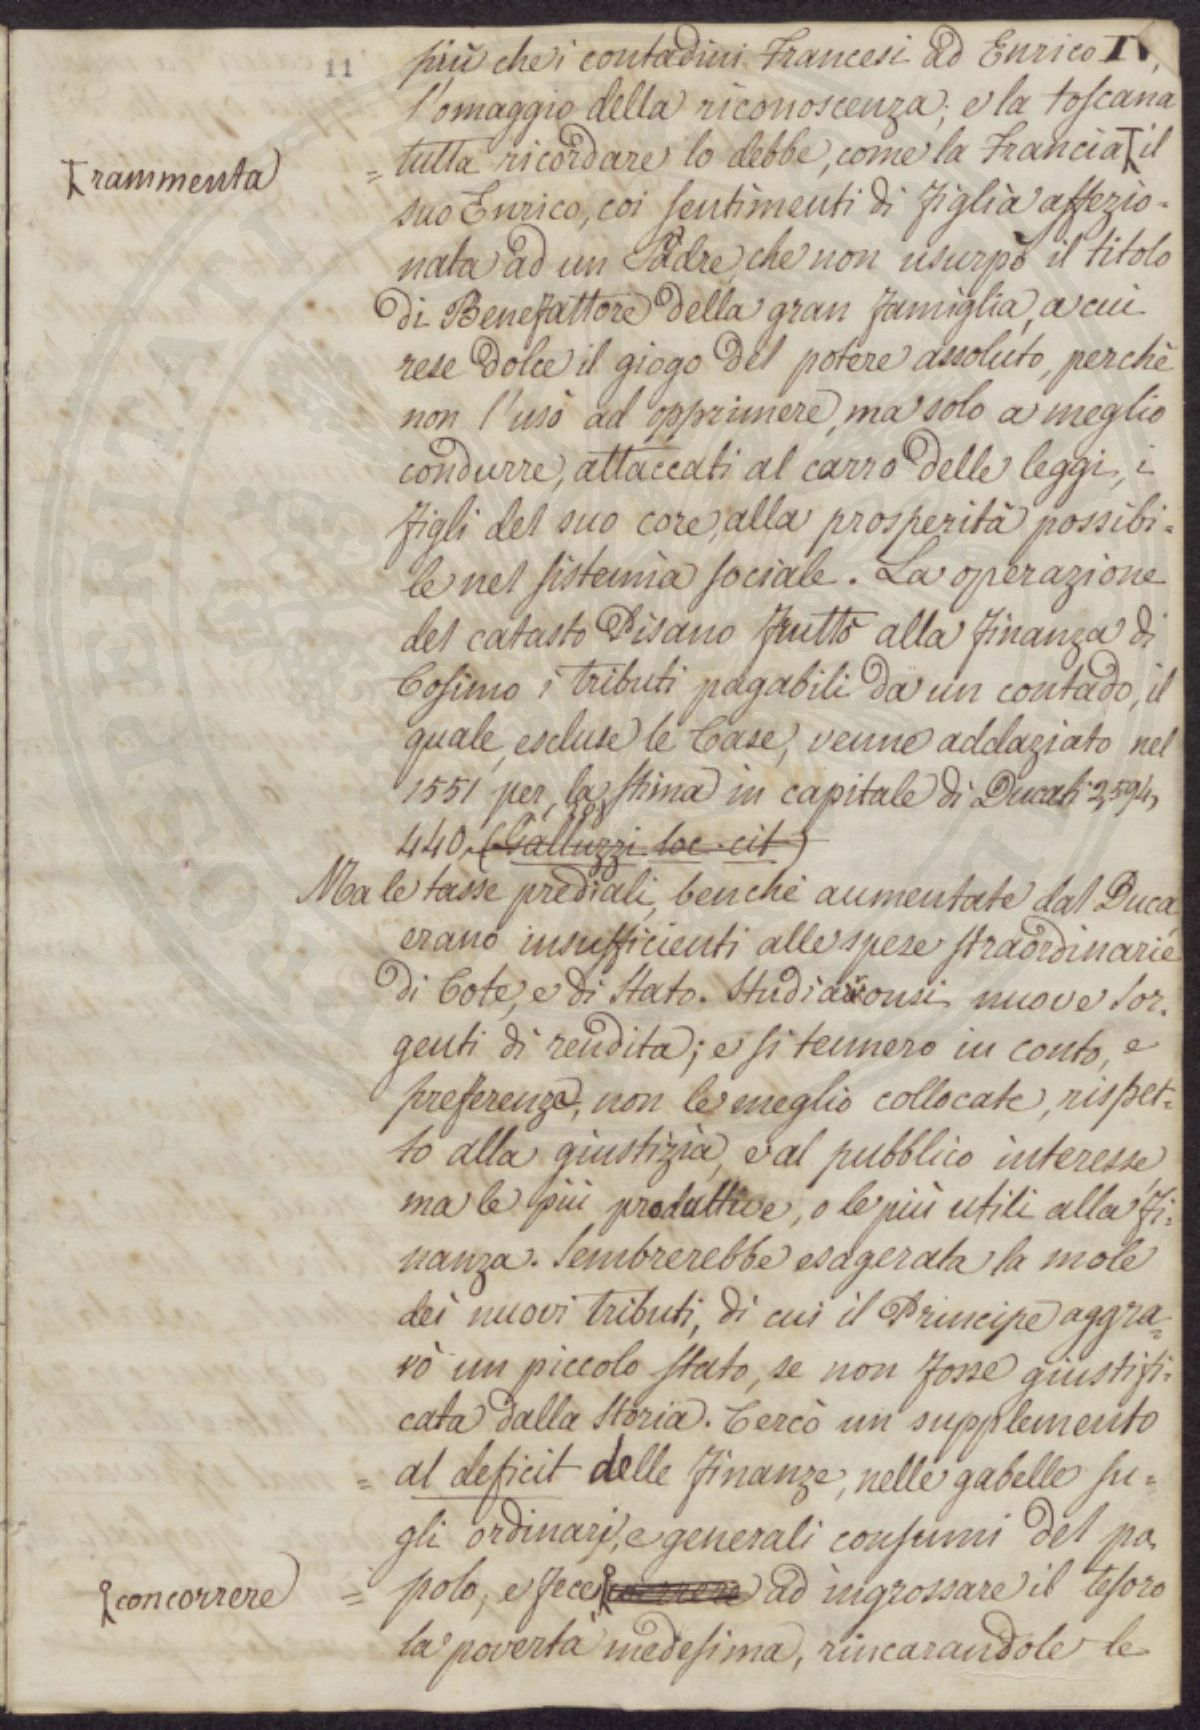 11
più che i contadini Francesi ad Enrico IV,
l'omaggio della riconoscenza; e la toscana
tutta ricordare lo debbe, come la Francia il
rammenta
suo Enrico, coi sentimenti di figlia affezio-
nata ad un Padre, che non usurpò il titolo
di Benefattore della gran famiglia, a cui
rese dolce il giogo del potere assoluto, perchè
non l'usò ad opprimere, ma solo a meglio
condurre, attaccati al carro delle leggi, i
figli del suo core, alla prosperità possibi=
le nel sistema sociale. La operazione
del catasto Pisano fruttò alla finanza di
Cosimo i tributi pagabili da un contado, il
quale, escluse le Case, venne addaziato nel
1551 per la stima in capitale di Ducati 2,594,
440. (Galluzzi loc. cit)
Ma le tasse prediali, benchè aumentate dal Duca
erano insufficienti alle spese straordinarie
di Cote, e di Stato. Studiaronsi nuove Sor.
genti di rendita; e si tennero in conto, e
preferenza, non le meglio collocate, rispet=
to alla giustizia, e al pubblico interesse,
ma le più produttive, o le più utili alla Fi=
nanza. Sembrerebbe esagerata la mole
dei nuovi tributi, di cui il Principe aggra=
vò un piccolo Stato, se non fosse giustifi=
cata dalla Storia. Cercò un supplemento
= al deficit delle Finanze, nelle gabelle su=
gli ordinarj, e generali consumi del po,
concorrere = polo, e fece correre ad ingrossare il tesoro
la povertà medesima, rincarandole le